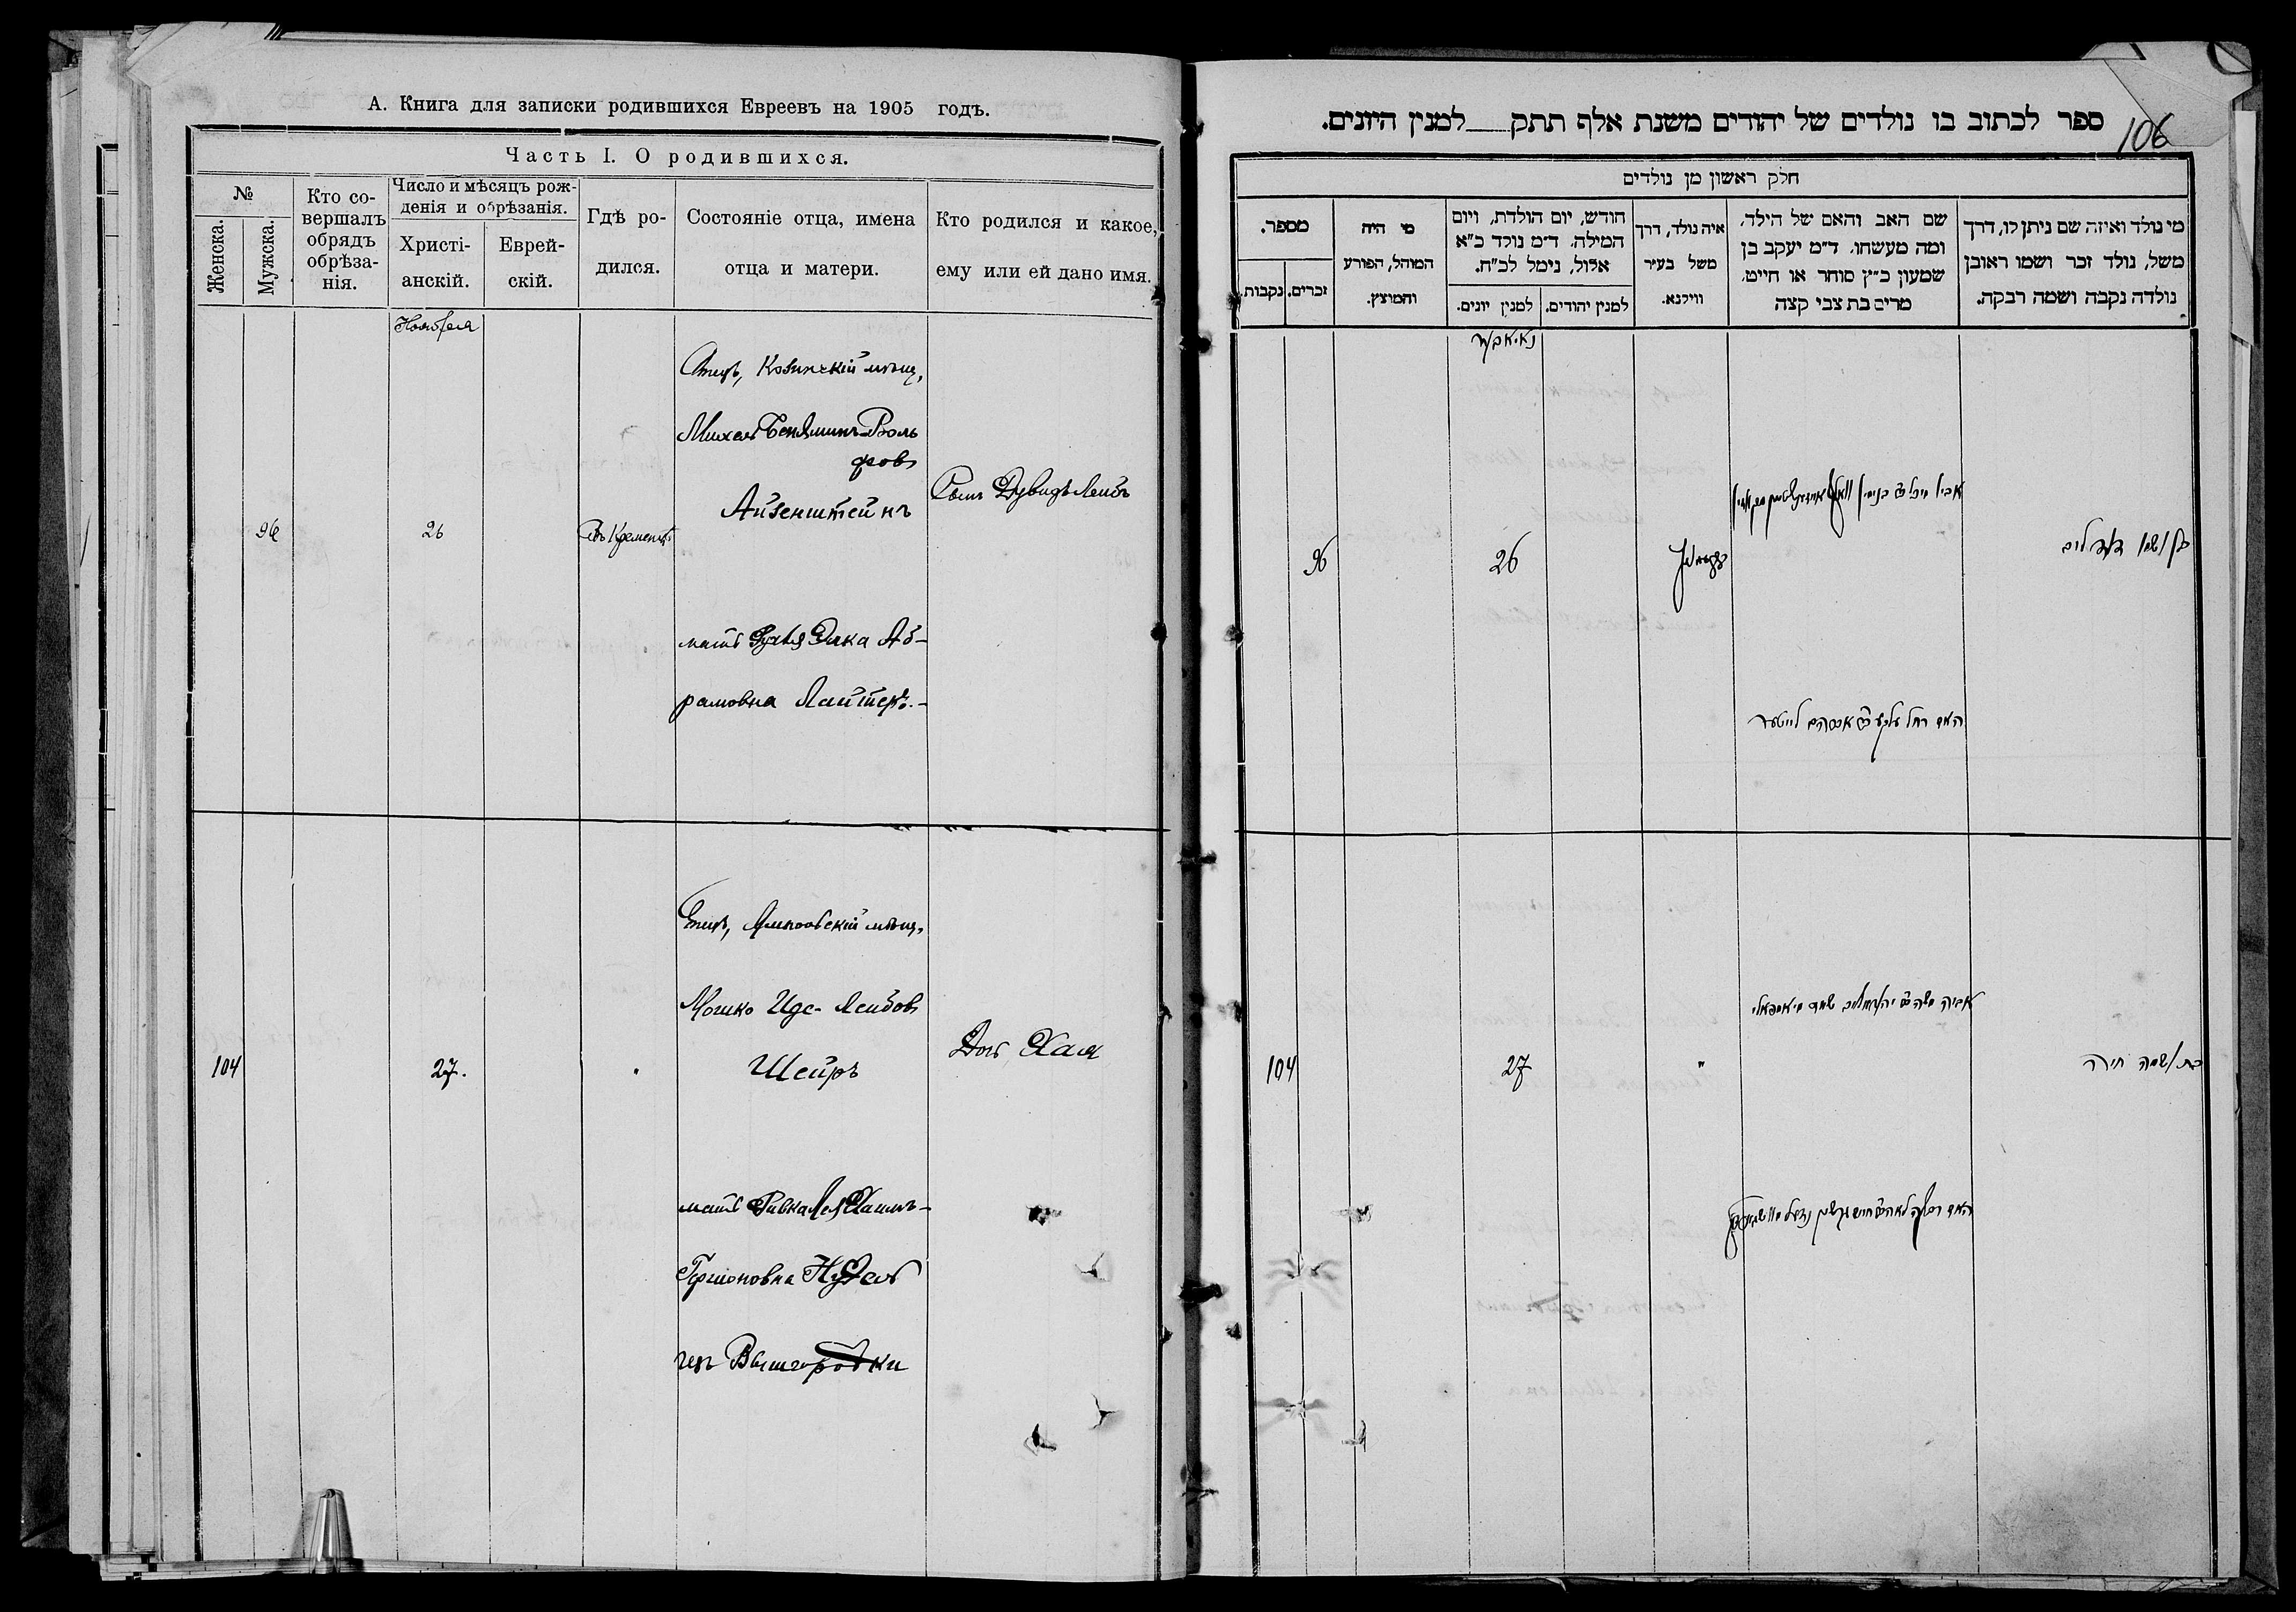 А. Книга для записки родившихся Евреевъ на 1905 годъ.
Часть I. О родившихся.
№
Женска.
Мужска.
Кто со-
вершалъ
обрядъ
обрѣза-
нія.
Число и мѣсяцъ рож-
денія и обрѣзанія.
Христі-
анскій.
Еврей-
скій.
Гдѣ ро-
дился.
Состояніе отца, имена
отца и матери.
Кто родился и какое,
ему или ей дано имя.
Ноября
96
26
Въ Кременц.
Отецъ, Козинскій мѣщ.
Михель Беньяминъ Воль
фовъ
Айзенштейнъ
мать Элка Аб-
рамовна Лайтеръ.-
Сынъ Дувидъ Лейбъ
104
27.
Отецъ, Ямпольскій мѣщ.
Мошко Иде- Лейбовъ
Шейръ
мать Ривка Лея Хаимъ-
Гершоновна Нудель
изъ Вышгородки
Дочь Хая
106
ספר לכתוב בו נולדים של יהודים משנת אלף תתק למנין היונים.
חלק ראשון מן נולדים
מספר.
זכרים.
נקבות.
מי היה
המוהל, הפורע
והמוצץ.
חודש, יום הולדת, ויום
המילה. ד״מ נולד כ״א
אלול, נימל לכ״ח.
למנין יונים.
למנין יהודים.
איה נולד, דרך
משל בעיר
ווילנא.
שם האב והאם של הילד,
ומה מעשהו. ד״מ יעקב בן
שמעון כ״ץ סוחר או חייט,
מרים בת צבי קצה
מי נולד ואיזה שם ניתן לו, דרך
משל, נולד זכר ושמו ראובן
נולדה נקבה ושמה רבקה.
96
26
האם רחל עלקע אברהם לייטער
בן ושמו דוד לייב
104
27
"
בת ושמה חיה